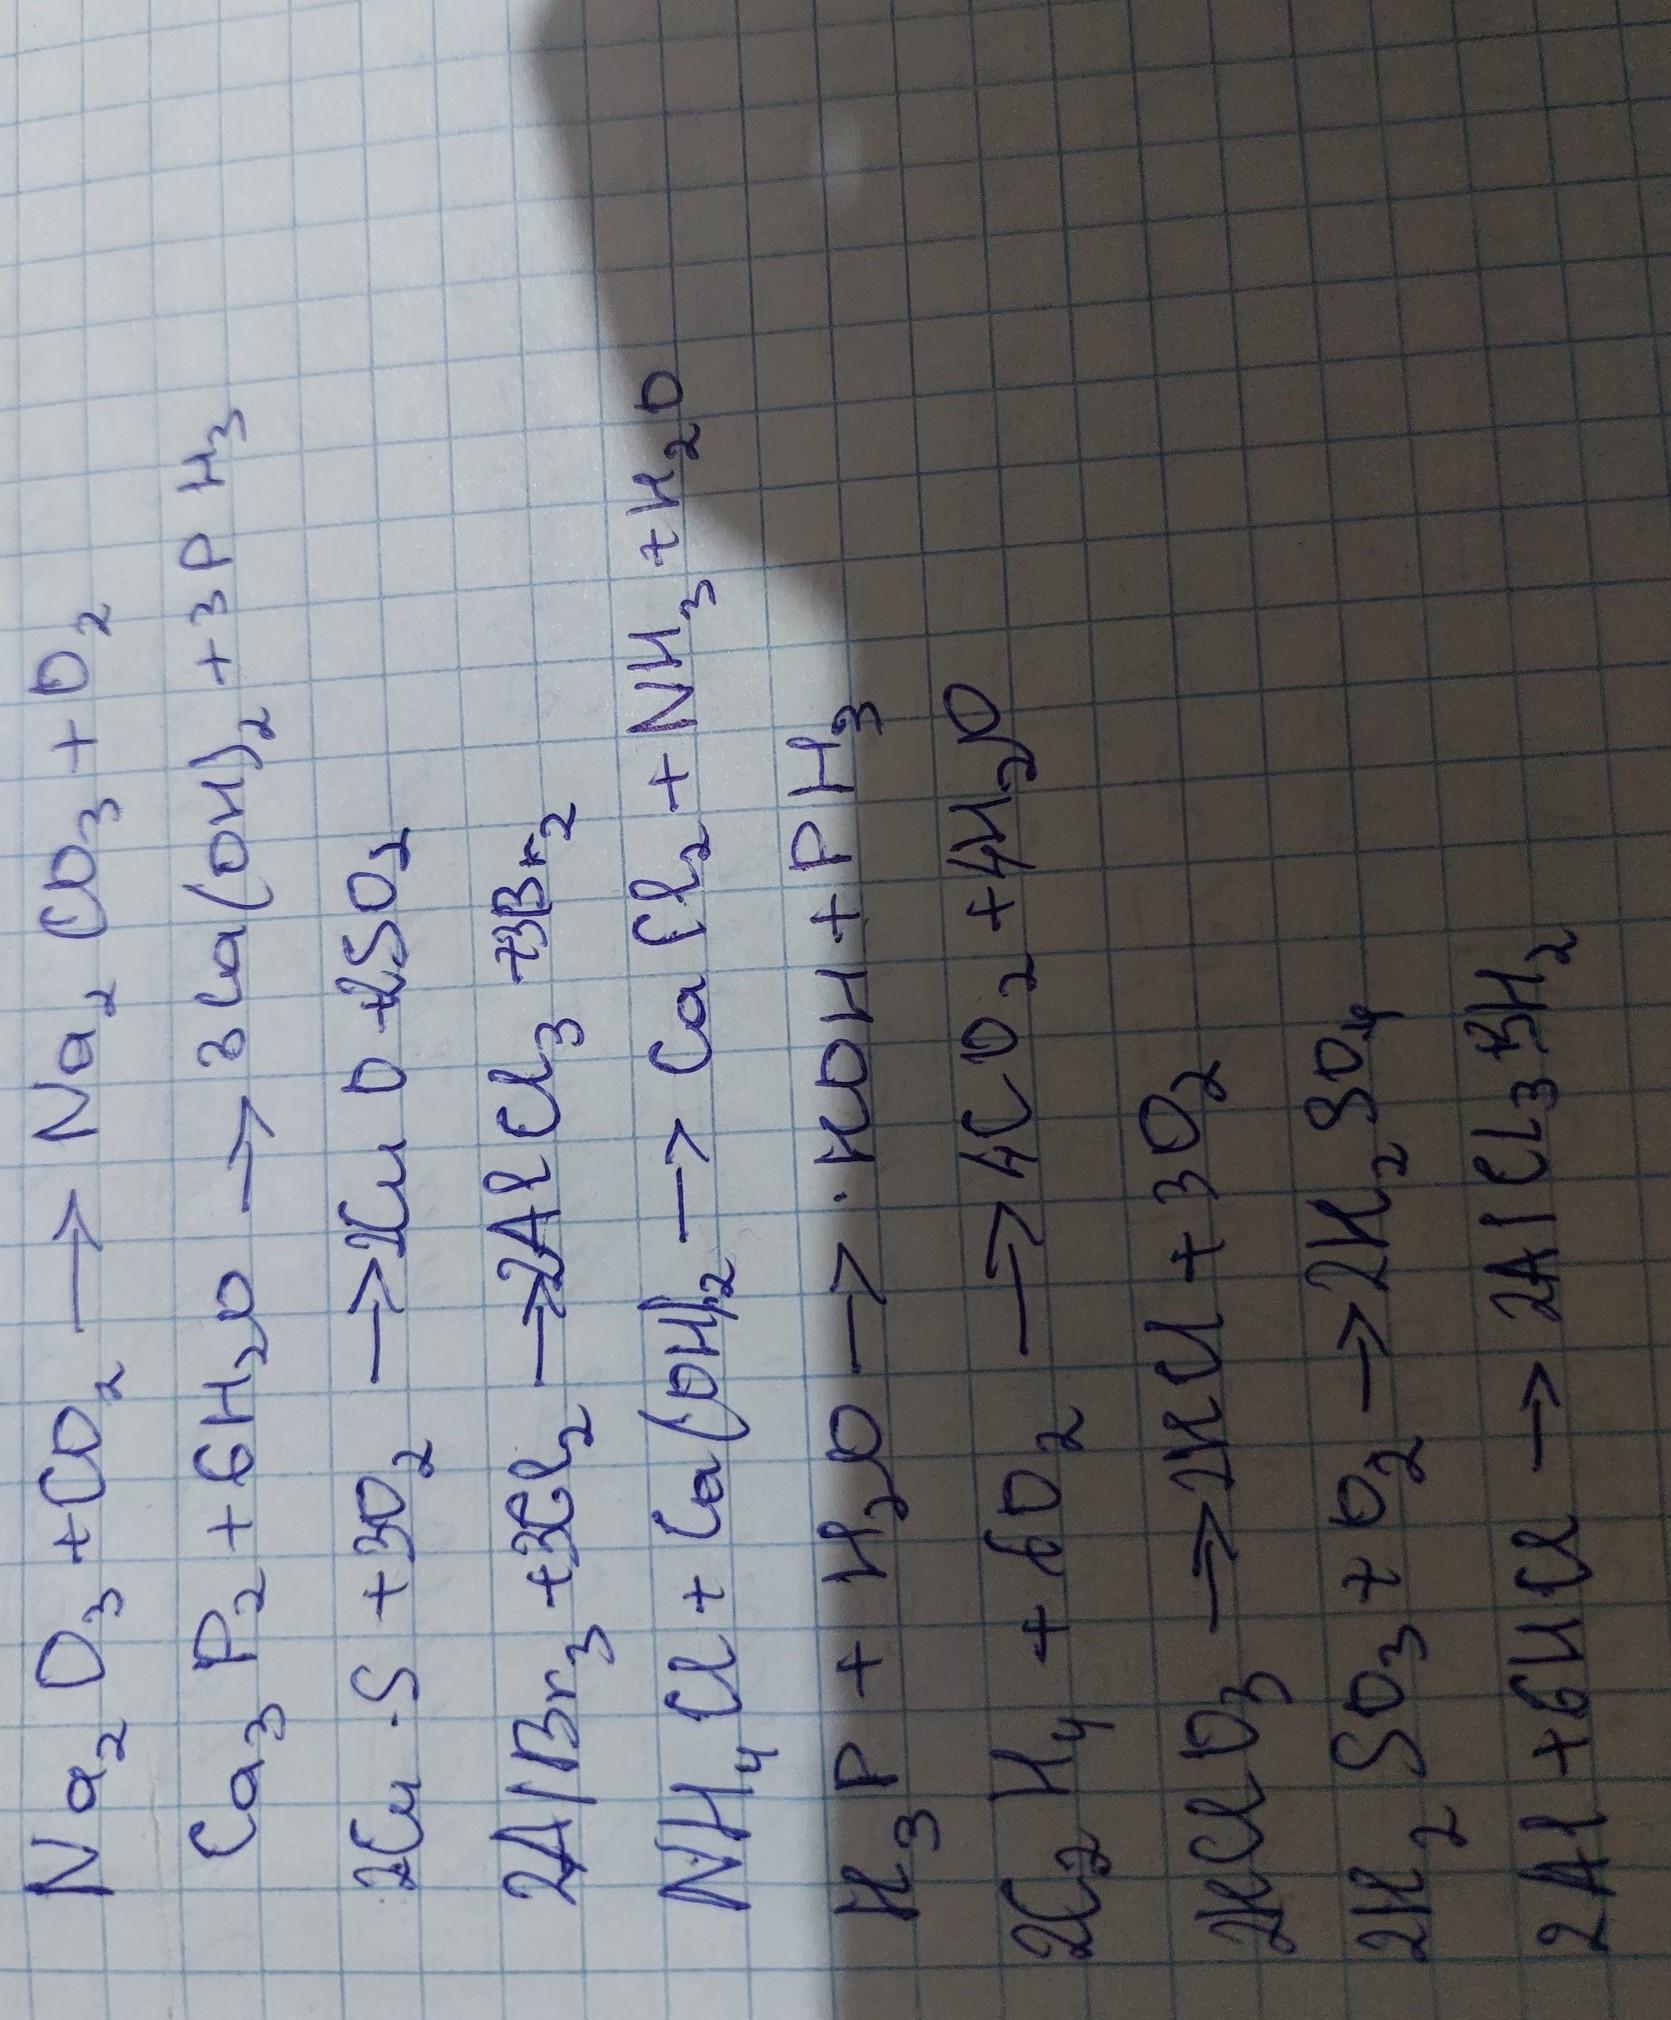 Na₂O₃ + CO₂ → Na₂CO₃ + O₂
Ca₃P₂ + 6H₂O → 3Ca(OH)₂ + 3PH₃
2CuS + 3O₂ → 2CuO + 2SO₂
2AlBr₃ + 3Cl₂ → 2AlCl₃ + 3Br₂
NH₄Cl + Ca(OH)₂ → CaCl₂ + NH₃ + H₂O
K₃P + H₂O → KOH + PH₃
2C₂H₄ + 6O₂ → 4CO₂ + 4H₂O
2KClO₃ → 2KCl + 3O₂
2H₂SO₃ + O₂ → 2H₂SO₄
2Al + 6HCl → 2AlCl₃ + 3H₂